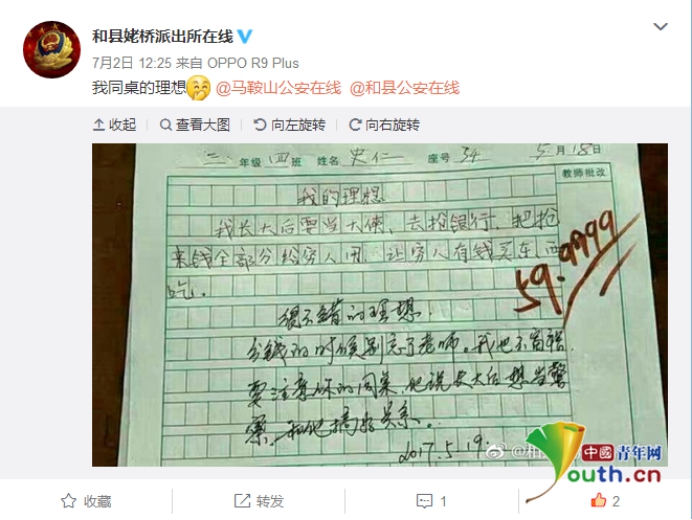 和县姥桥派出所在线
7月2日 12:25 来自 OPPO R9 Plus
我同桌的理想 @马鞍山公安在线 @和县公安在线
收起 查看大图 向左旋转 向右旋转
二年级四班 姓名 史仁 座号 34 5月18日
教师批改
我的理想
我长大后要当大侠、去抢银行,把抢
来钱全部分给穷人用,让穷人有钱买东西
吃.
59.9999
很不错的理想.
分钱的时候别忘了老师。我也不富裕.
要注意你的同桌,他说长大后想当警
察,和他搞好关系。
2017.5.19.
中国青年网
Youth.cn
收藏 转发 1 2